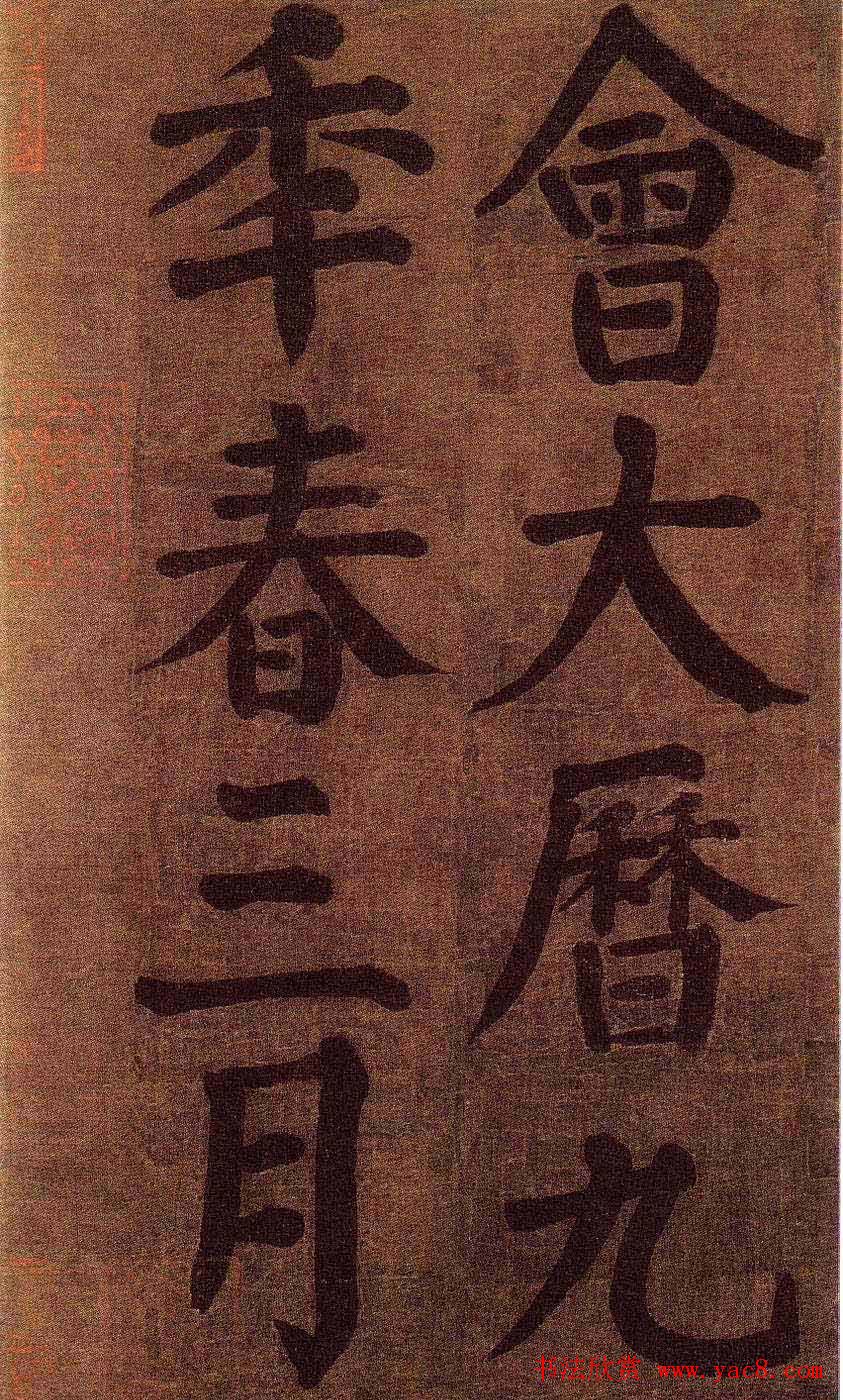 會大曆九
秊春三月
书法欣赏 www.yac8.com